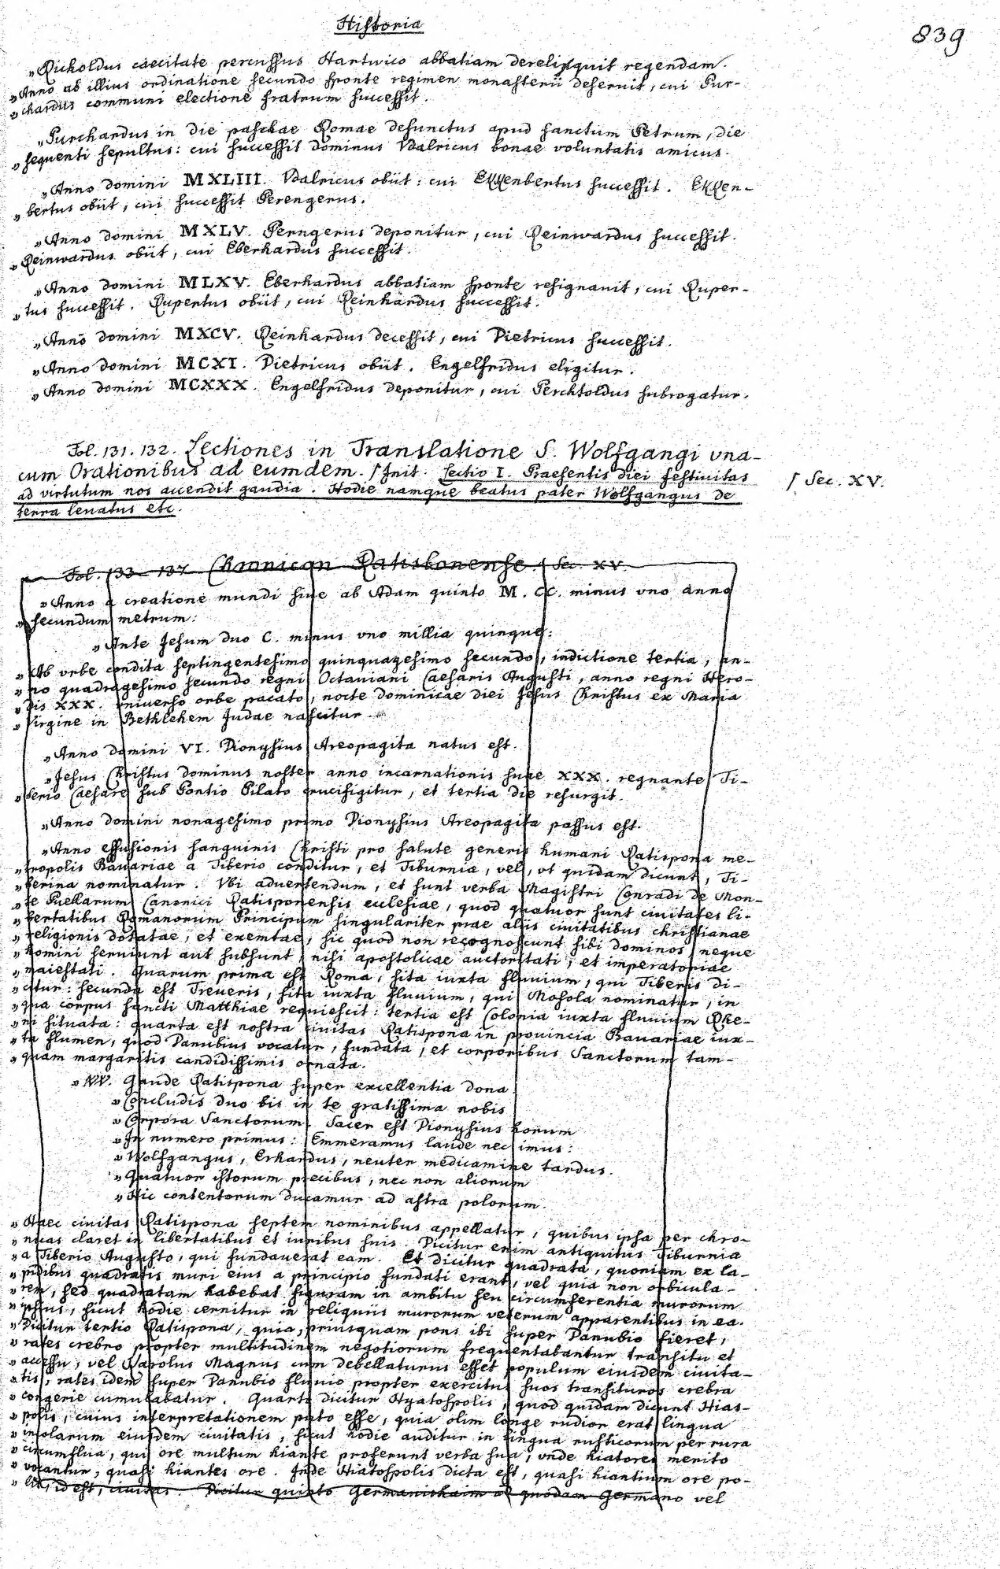 Historia
839
„Richoldus caecitate percussus Hartwico abbatiam dereliquit regendam.
„Anno ab illius ordinatione secundo sponte regimen monasterii deseruit, cui Pur-
„chardus communi electione fratrum successit.
„Purchardus in die paschae Romae defunctus apud sanctum Petrum, die
„sequenti sepultus: cui successit dominus Vdalricus bonae voluntatis amicus.
„Anno domini MXLIII. Vdalricus obiit: cui Ekkenbertus successit. Ekken-
„bertus obiit, cui successit Perengerus.
„Anno domini MXLV. Perngerus deponitur, cui Reinwardus successit.
„Reinwardus obiit, cui Eberhardus successit.
„Anno domini MLXV. Eberhardus abbatiam sponte resignauit, cui Ruper-
„tus successit. Rupertus obiit, cui Reinhardus successit.
„Anno domini MXCV. Reinhardus decessit, cui Pietricus successit.
„Anno domini MCXI. Pietricus obiit. Engelfridus eligitur.
„Anno domini MCXXX. Engelfridus deponitur, cui Perchtoldus subrogatur.
Fol. 131. 132. Lectiones in Translatione S. Wolfgangi vna-
cum Orationibus ad eumdem. / Init. Lectio I. Praesentis diei festiuitas
/ Sec. XV.
ad virtutum nos accendit gaudia. Hodie namque beatus pater Wolfgangus de
terra leuatus etc.
Fol. 133 - 137 Chronicon Ratisbonense. / Sec. XV.
„Anno a creatione mundi siue ab Adam quinto M. CC. minus vno anno
„secundum metrum:
„Ante Jesum duo C. minus vno millia quinque:
„Ab vrbe condita septingentesimo quinquagesimo secundo, indictione tertia, an-
„no quadragesimo secundo regni Octauiani Caesaris Augusti, anno regni Hero-
„dis XXX. vniuerso orbe pacato, nocte dominicae diei Jesus Christus ex Maria
„Virgine in Bethlehem Judae nascitur.
„Anno domini VI. Dionysius Areopagita natus est.
„Jesus Christus dominus noster anno incarnationis suae XXX. regnante Ti-
„berio Caesare sub Pontio Pilato crucifigitur, et tertia die resurgit.
„Anno domini nonagesimo primo Dionysius Areopagita passus est.
„Anno effusionis sanguinis Christi pro salute generis humani Ratispona me-
„tropolis Bauariae a Tiberio conditur, et Tiburnia, vel, vt quidam dicunt, Ti-
„berina nominatur. Vbi aduertendum, et sunt verba Magistri Conradi de Mon-
„te Puellarum Canonici Ratisponensis ecclesiae, quod quatuor sunt ciuitates li-
„bertatibus Romanorum Principum singulariter prae aliis ciuitatibus christianae
„religionis dotatae, et exemtae, sic quod non recognoscunt sibi dominos, neque
„homini seruiunt aut subsunt, nisi apostolicae auctoritati, et imperatoriae
„maiestati. Quarum prima est Roma, sita iuxta fluuium, qui Tiberis di-
„citur: secunda est Treueris, sita iuxta fluuium, qui Mosola nominatur, in
„qua corpus sancti Matthiae requiescit: tertia est Colonia iuxta fluuium Rhe-
„ni situata: quarta est nostra ciuitas Ratispona in prouincia Bauariae iux-
„ta flumen, quod Danubius vocatur, fundata, et corporibus Sanctorum tam-
„quam margaritis candidissimis ornata.
„VV. Gaude Ratispona super excellentia dona
„Concludis duo bis in te gratissima nobis
„Corpora Sanctorum. Sacer est Dionysius horum
„In numero primus: Emmeramus laude nec imus:
„Wolfgangus, Erhardus, neuter medicamine tardus.
„Quatuor istorum precibus, nec non aliorum
„Hic contentorum ducamur ad astra polorum.
„Haec ciuitas Ratispona septem nominibus appellatur, quibus ipsa per chro-
„nicas claret in libertatibus et iuribus suis. Dicitur enim antiquitus Tiburnia
„a Tiberio Augusto, qui fundauerat eam. Et dicitur quadrata, quoniam ex la-
„pidibus quadratis muri eius a principio fundati erant, vel quia non orbicula-
„rem, sed quadratam habebat figuram in ambitu seu circumferentia murorum
„ipsius, sicut hodie cernitur in reliquiis murorum veterum apparentibus in ea.
„Dicitur tertio Ratispona, quia, priusquam pons ibi super Danubio fieret,
„rates crebro propter multitudinem negotiorum frequentabantur transitu et
„accessu, vel Carolus Magnus cum debellaturus esset populum eiusdem ciuita-
„tis, rates idem super Danubio fluuio propter exercitus suos transituros crebra
„congerie cumulabatur. Quarto dicitur Hyatospolis, quod quidam dicunt Hias-
„polis, cuius interpretationem puto esse, quia olim longe rudior erat lingua
„incolarum eiusdem ciuitatis, sicut hodie auditur in lingua rusticorum per rura
„circumflua, qui ore multum hiante proferunt verba sua, vnde hiatores merito
„vocantur, quasi hiantes ore. Inde Hiatospolis dicta est, quasi hiantium ore po-
„lis, id est, ciuitas. Dicitur quinto Germanisheim a quodam Germano vel